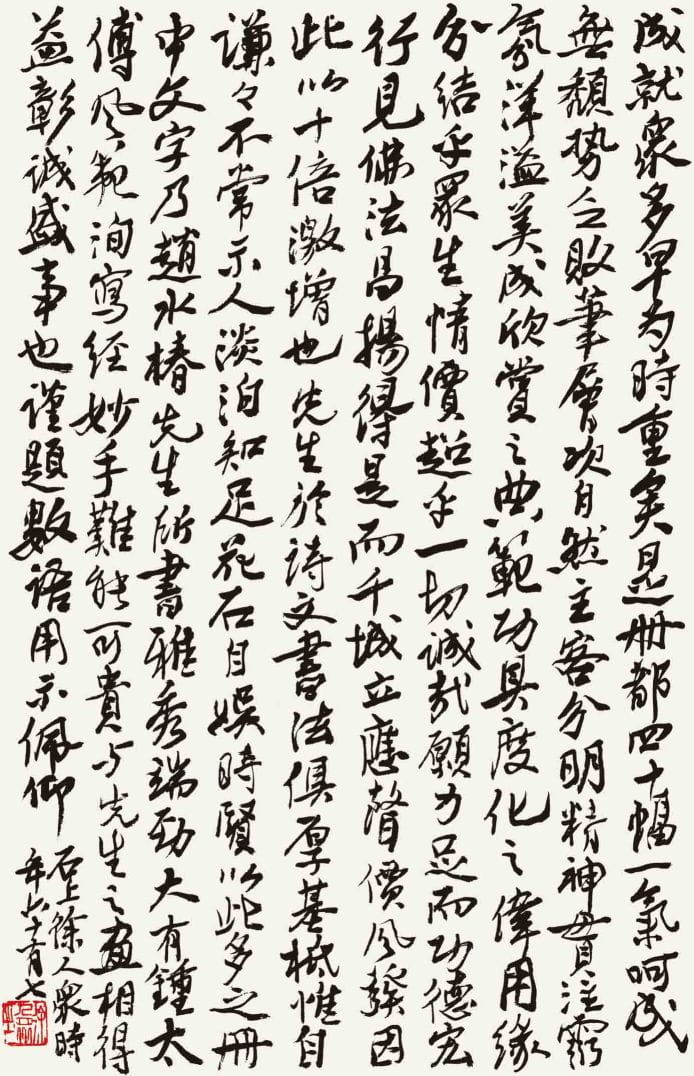 成就眾多早為時重矣是冊都四十幅一氣呵成
無頹勢之敗筆層次自然主客分明精神貫注靈
氣洋溢美成欣賞之典範功具度化之偉用緣
分結乎眾生情價超乎一切誠哉願力足而功德宏
行見佛法昌揚得是而千城立應聲價風發因
此以十倍激增也先生於詩文書法俱厚基柢惟自
謙々不常示人淡泊知足花石自娛時賢以此多之冊
中文字乃趙水椿先生所書雅秀端勁大有鍾太
傅風範洵寫經妙手難能可貴與先生之畫相得
益彰誠盛事也謹題數語用示佩仰
石上餘人眾時
年六十有七